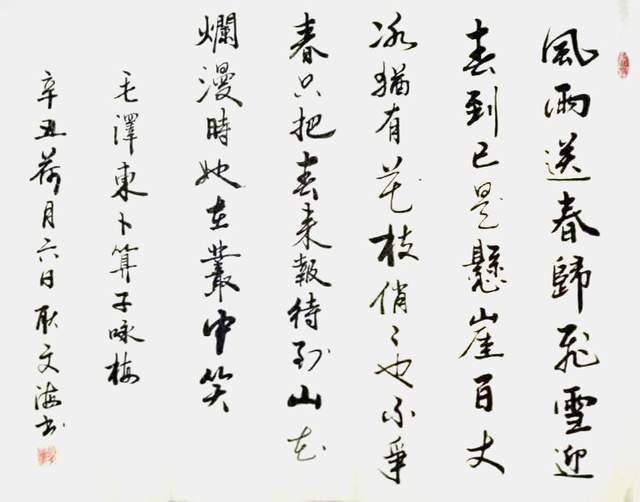 風雨送春歸飛雪迎
春到已是懸崖百丈
冰猶有花枝俏〻也不爭
春只把春來報待到山花
爛漫時她在叢中笑
毛澤東卜算子咏梅
辛丑荷月六日耿文海书